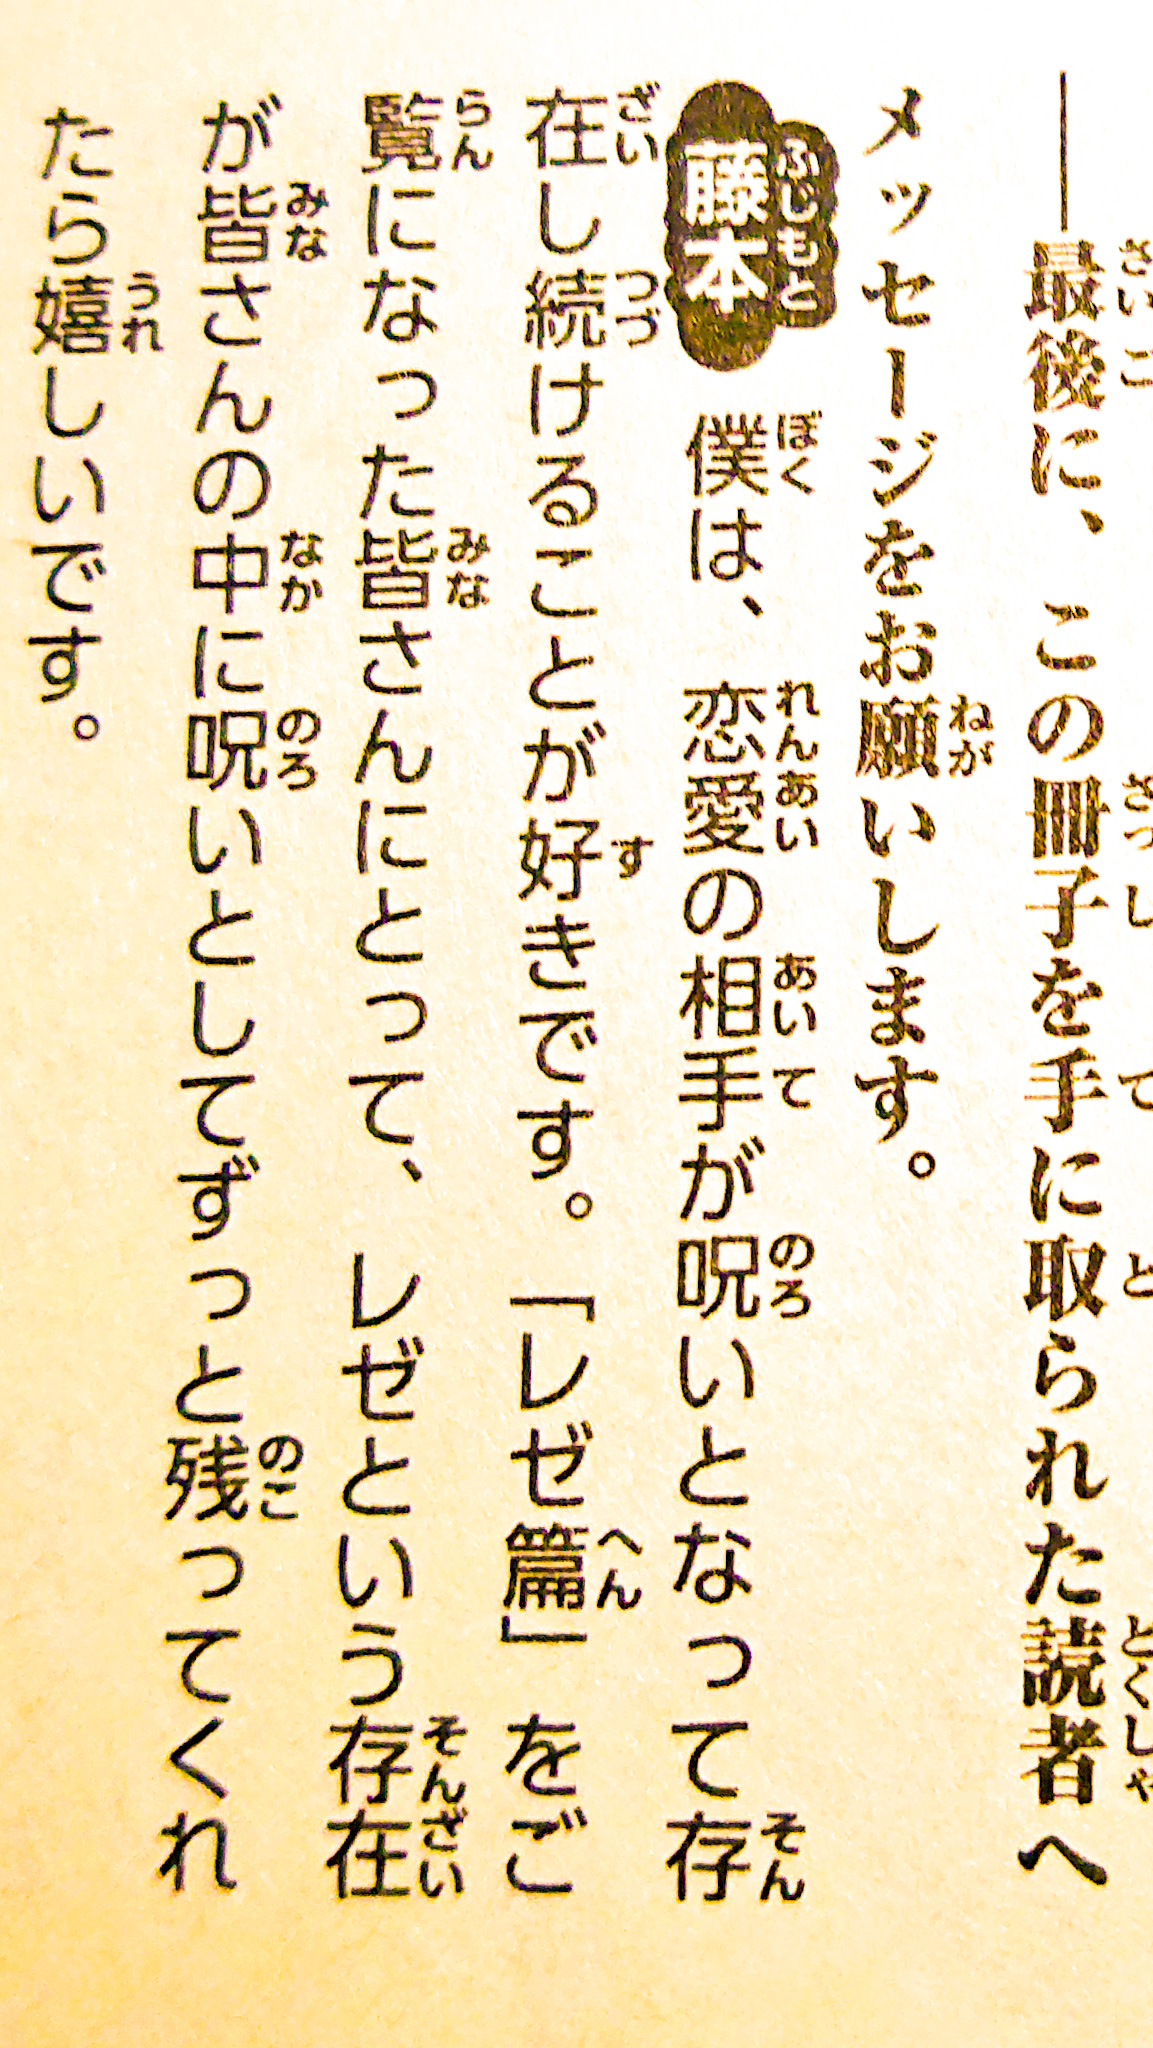 ――最後に、この冊子を手に取られた読者へ
メッセージをお願いします。
藤本 僕は、恋愛の相手が呪いとなって存
在し続けることが好きです。「レゼ篇」をご
覧になった皆さんにとって、レゼという存在
が皆さんの中に呪いとしてずっと残ってくれ
たら嬉しいです。